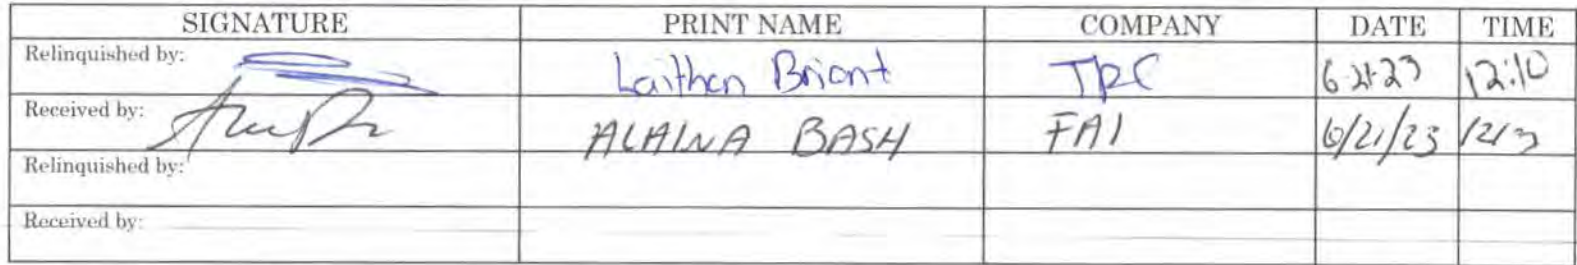 SIGNATURE PRINT NAME COMPANY DATE TIME
Relinquished by: Laithen Briont TRC 6-21-23 12:10
Received by: ALAINA BASH FAI 6/21/23
Relinquished by:
Received by: